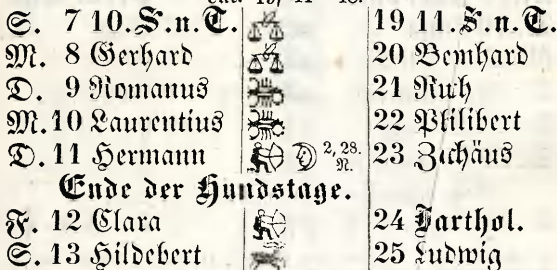 S. 7 10. S. n. T. 19 11. S. n. T.
M. 8 Gerhard 20 Bernhard
D. 9 Romanus 21 Ruth
M. 10 Laurentius 22 Philibert
D. 11 Hermann 2, 28. N. 23 Zachäus
Ende der Hundstage.
F. 12 Clara 24 Barthol.
S. 13 Hildebert 25 Ludwig